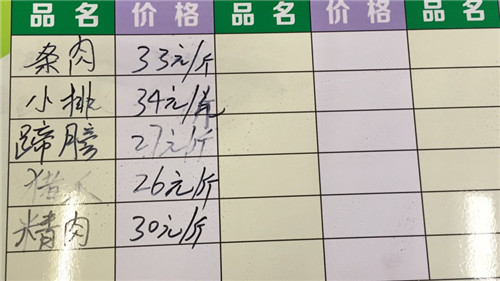 品名 价格 品名 价格 品名
条肉 33元/斤
小排 34元/斤
蹄膀 27元/斤
猪爪 26元/斤
精肉 30元/斤